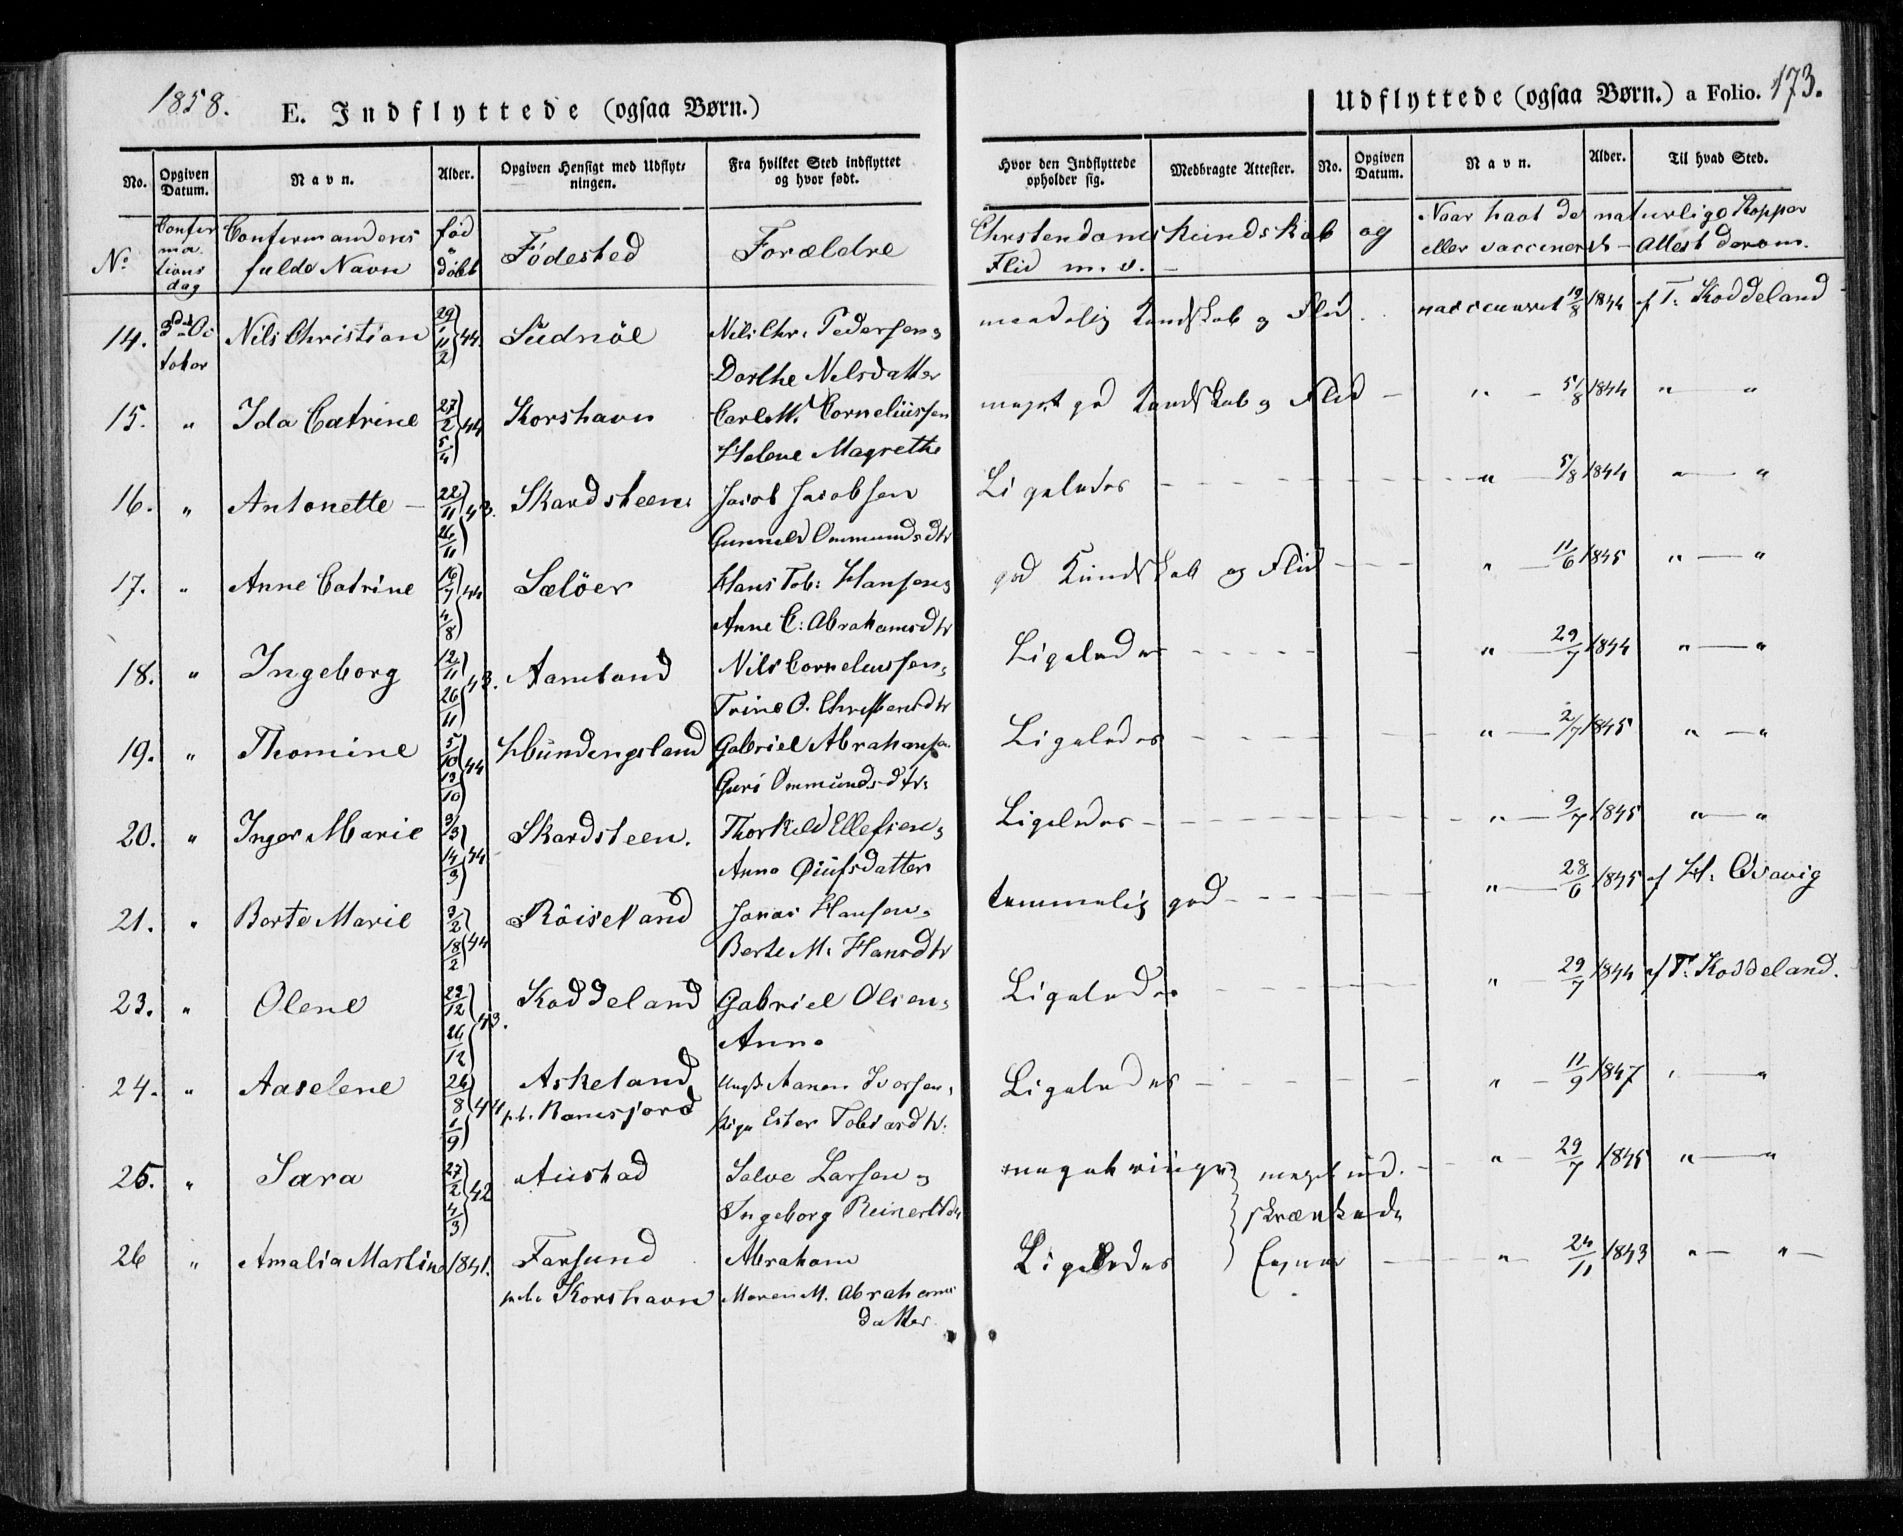 1858.
E. Indflyttede (ogsaa Børn.)
Udflyttede (ogsaa Børn.) a Folio. 173.
No. Opgiven Datum. Navn. Alder. Opgiven Hensigt med Udflytningen. Fra hvilket Sted indflyttet og hvor født. Hvor den Indflyttede opholder sig. Medbragte Attester. No. Opgiven Datum. Navn. Alder. Til hvad Sted.
No Confirmations dag Confirmandens fulde Navn Fød døbt Fødested Forældre Christendomskundskab og Flid m. v. Naar havt de naturlige Kopper eller vaccineret - Attest derom.
14. 3die October Nils Christian 29/1 11/2 44. Sudnøl Nils Chr. Pedersen & maadelig Kundskab og Flid. vaccineret 19/8 1844 af T. Koddeland
Dorthe Nelsdatter
15. " Ida Catrine 27/2 5/4 44 Korshavn Carl M. Corneliussen meget god Kundskab og Flid - " - 5/8 1844 " "
Helene Magrethe
16. " Antonette - 22/11 26/11 43. Skardsteen. Jacob Jacobsen Ligeledes " 5/8 1844 " "
Gunneld Ommundsdtr
17. " Anne Catrine 16/7 4/8 44 Sæløer Hans Tob: Hansen & god Kundskab og Flid " 11/6 1845 " "
Anne C: Abrahamsdtr
18. " Ingeborg 12/11 26/11 43. Aamland Nils Corneliussen, Ligeledes " 29/7 1844 " "
Trine O. Christensdtr
19. " Thomine 5/10 13/10 44 Hundingsland Gabriel Abrahamsen Ligeledes " 2/7 1845 " "
Guri Ommundsdtr:
20. " Inger Marie 3/3 14/3 44 Skardsteen. Thorkild Ellefsen & Ligeledes " 9/7 1845 " "
Anna Øiufsdatter
21. " Berte Marie 3/2 18/2 44 Røiseland Jonas Hansen & temmelig god " 28/6 1845 af H. Qvavig
Berte M. Hansdtr
23. " Olene 23/12 26/12 43. Koddeland Gabriel Olsen & Ligeledes " 29/7 1844 af T. Koddeland.
Anna
24. " Aaselene 26/8 1/9 44 Askeland Ungk. Aanen Iversen, Ligeledes " 11/9 1847 " "
Ramsfjord Pige Ester Tobiasdtr.
25. " Sara 27/2 4/3 42 Austad Salve Larsen & meget ringe meget ind- " 29/7 1845 " "
Ingeborg Reinertsdtr skrænkede
26 " Amalia Martine 1841. Farsund Abraham Ligeledes Evner " 24/11 1843 " "
Korshavn Maren M. Abrahams
datter